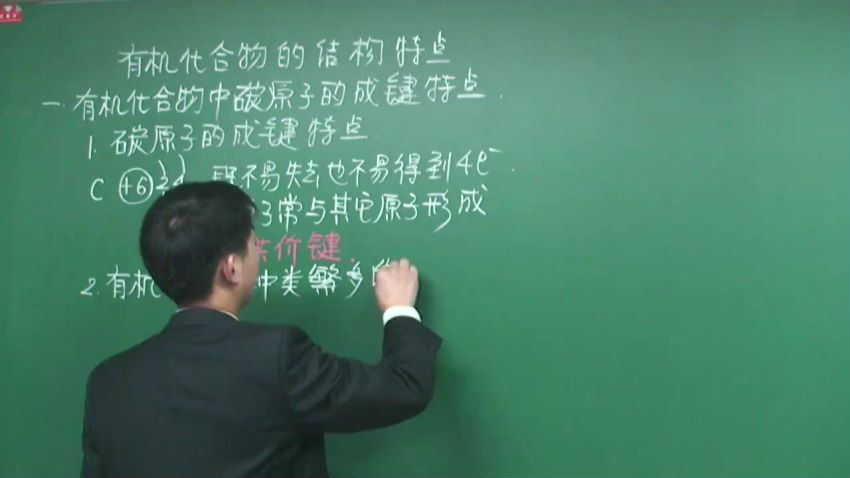 有机化合物的结构特点
一.有机化合物中碳原子的成键特点.
1.碳原子的成键特点
C +6 2 4 既不易失去也不易得到4e⁻.
子常与其它原子形成
共价键.
2.有机 种类繁多的